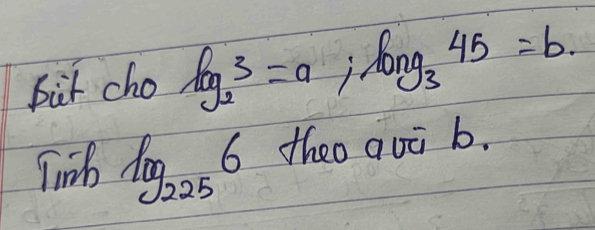 Biết cho log₂3 = a ; long₃45 = b.
Tính log₂₂₅6 theo a và b.